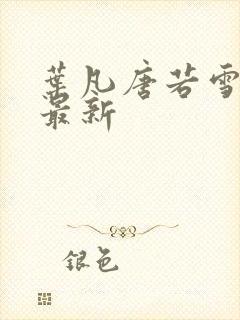 葉凡唐若雪
最新
銀色